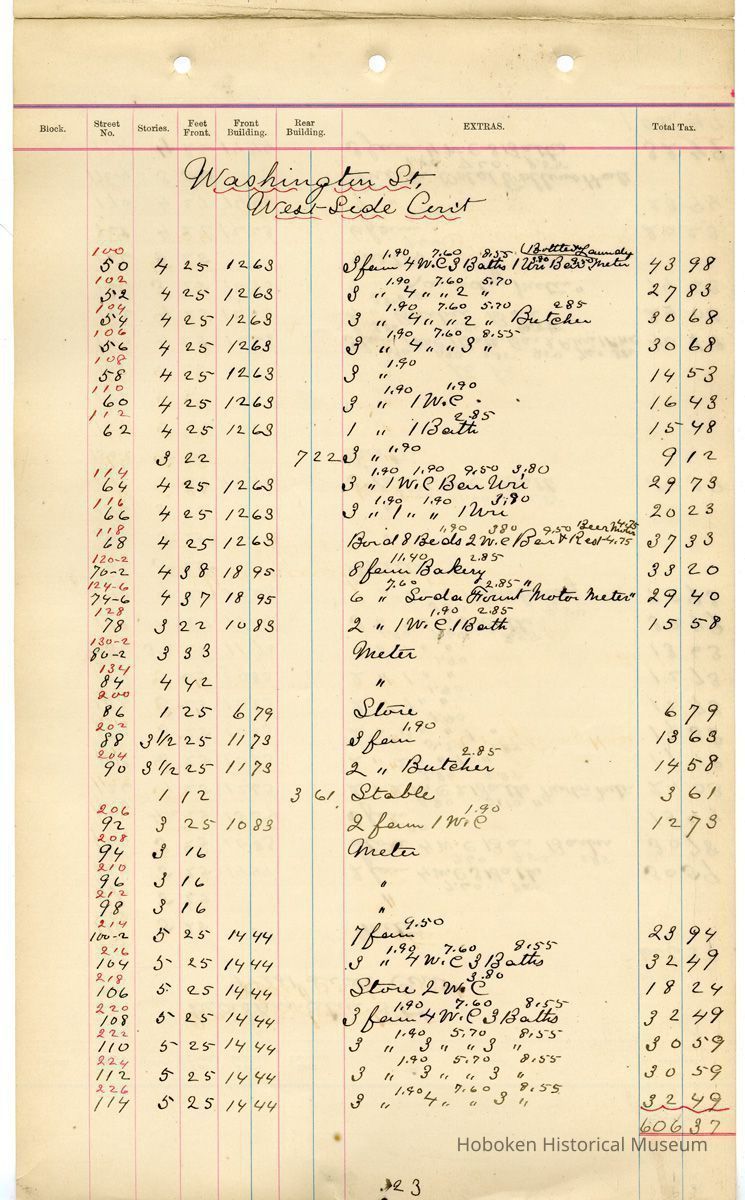 Block. Street No. Stories. Feet Front. Front Building. Rear Building. EXTRAS. Total Tax.
Washington St,
West Side Con't
100 1.90 7.60 8.55 Bottler Laundry
50 4 25 12 63 3 fam 4 W.C 3 Baths 1 Uri Beer Meter 43 98
102 1.90 7.60 5.70
52 4 25 12 63 3 " 4 " " 2 " 27 83
104 1.90 7.60 5.70 2.85
54 4 25 12 63 3 " 4 " " 2 " Butcher 30 68
106 1.90 7.60 8.55
56 4 25 12 63 3 " 4 " " 3 " 30 68
108 1.90
58 4 25 12 63 3 " 14 53
110 1.90 1.90
60 4 25 12 63 3 " 1 W.C. 16 43
112 2.85
62 4 25 12 63 1 " 1 Bath 15 48
1.90
3 22 7 22 3 " 9 12
114 1.90 1.90 9.50 3.80
64 4 25 12 63 3 " 1 W.C Bar Uri 29 73
116 1.90 1.90 3.80
66 4 25 12 63 3 " 1 " " 1 Uri 20 23
118 1.90 380 9.50 Beer Meter 4.75
68 4 25 12 63 Bord 8 Beds 2 W.C Bar & Rest 4.75 37 33
120-2 11.40 2.85
70-2 4 38 18 95 8 fam Bakery 33 20
124-6 7.60 2.85 "
74-6 4 37 18 95 6 " Soda Fount Motor Meter" 29 40
128 1.90 2.85
78 3 22 10 83 2 " 1 W.C 1 Bath 15 58
130-2
80-2 3 33 Meter
134
84 4 42 "
200
86 1 25 6 79 Store 6 79
202 1.90
88 3 1/2 25 11 73 3 fam 13 63
204 2.85
90 3 1/2 25 11 73 2 " Butcher 14 58
1 12 3 61 Stable 3 61
206 1.90
92 3 25 10 83 2 fam 1 W.C 12 73
208
94 3 16 Meter
210
96 3 16 "
212
98 3 16 "
214 9.50
100-2 5 25 14 44 7 fam 23 94
216 1.90 7.60 8.55
104 5 25 14 44 3 " 4 W.C 3 Baths 32 49
218 3.80
106 5 25 14 44 Store 2 W.C 18 24
220 1.90 7.60 8.55
108 5 25 14 44 3 fam 4 W.C 3 Baths 32 49
222 1.90 5.70 8.55
110 5 25 14 44 3 " 3 " " 3 " 30 59
224 1.90 5.70 8.55
112 5 25 14 44 3 " 3 " " 3 " 30 59
226 1.90 7.60 8.55
114 5 25 14 44 3 " 4 " " 3 " 32 49
606 37
Hoboken Historical Museum
23